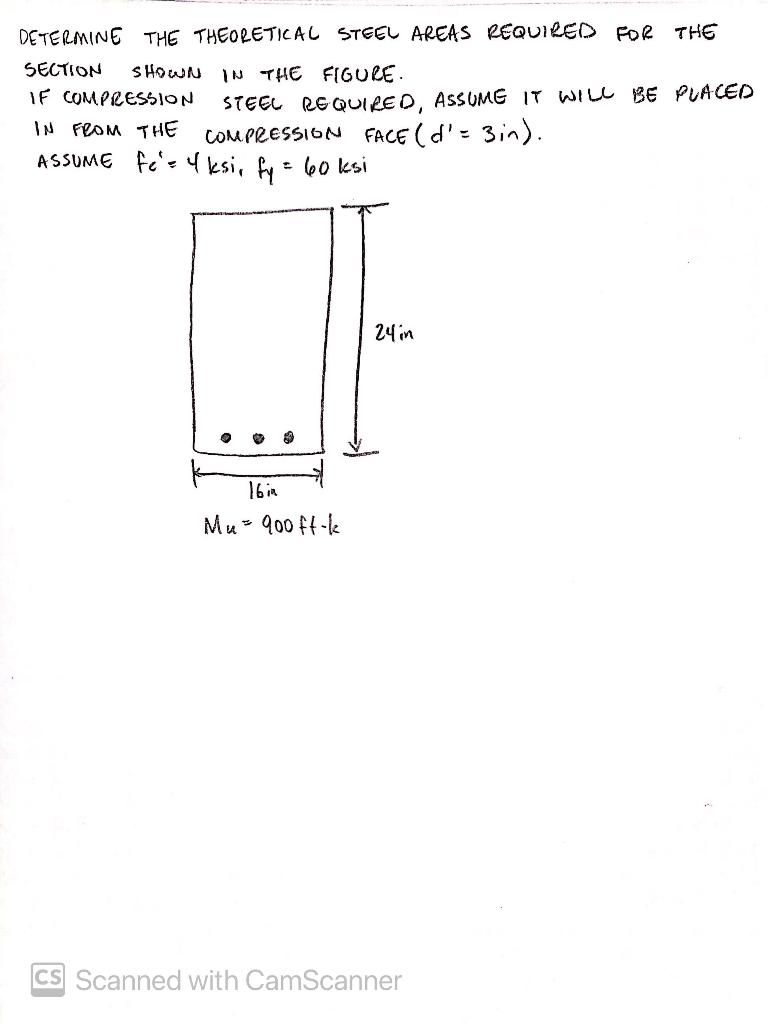 DETERMINE THE THEORETICAL STEEL AREAS REQUIRED FOR THE
SECTION SHOWN IN THE FIGURE.
IF COMPRESSION STEEL REQUIRED, ASSUME IT WILL BE PLACED
IN FROM THE COMPRESSION FACE (d' = 3in).
ASSUME fc' = 4 ksi, fy = 60 ksi
24in
16in
Mu = 900 ft-k
CS Scanned with CamScanner